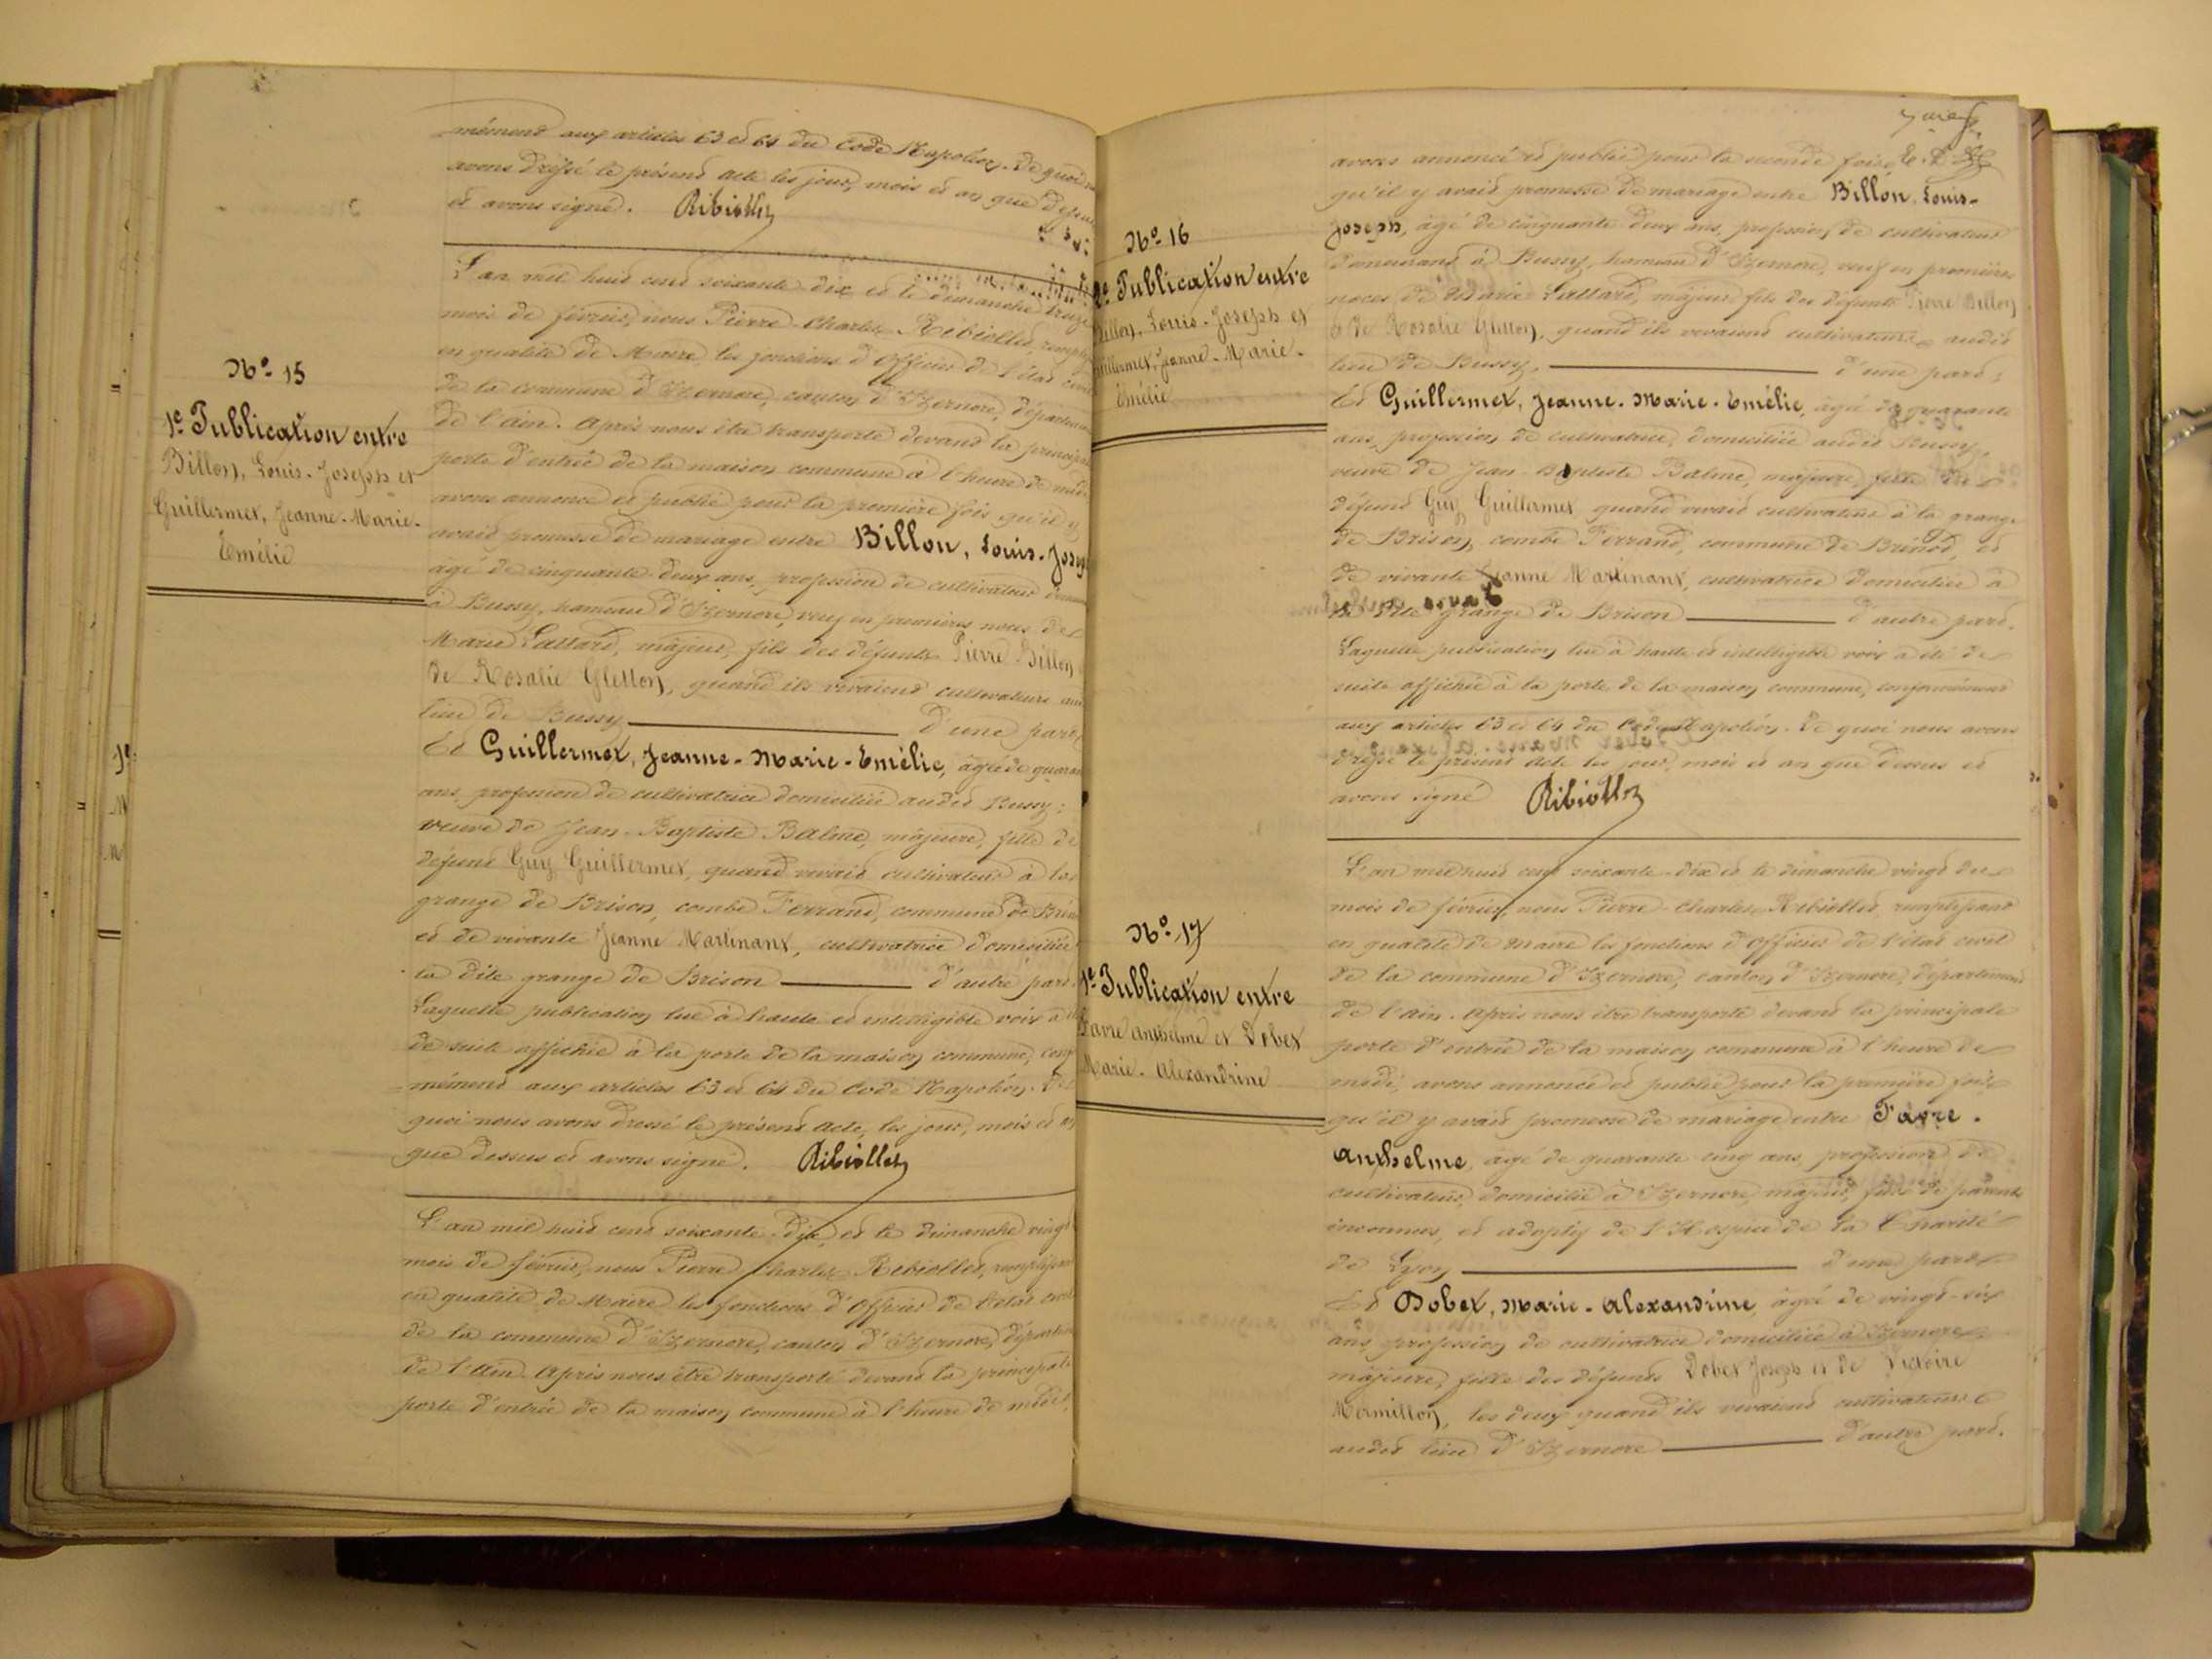 mément aux articles 63 et 64 du Code Napoléon. De quoi
avons dressé le présent acte les jour, mois et an que dessus
et avons signé. Ribiollet
L'an mil huit cent soixante dix et le dimanche treize
mois de février, nous Pierre Charles Ribiollet, rempli
en qualité de Maire les fonctions d'Officier de l'état civil
de la commune d'Izernore, canton d'Izernore, départem
de l'Ain. Après nous être transporté devant la principale
porte d'entrée de la maison commune à l'heure de midi
avons annoncé et publié pour la première fois qu'il y
avait promesse de mariage entre Billon, Louis-Josep
âgé de cinquante deux ans, profession de cultivateur
à Bussy, hameau d'Izernore, veuf en premières noces de
Marie Lallard, majeur, fils des défunts Pierre Billon
de Rosalie Gletton, quand ils vivaient cultivateurs
lieu de Bussy d'une part
Et Guillermet, Jeanne-Marie-Emélie, âgée de quaran
ans profession de cultivatrice domiciliée audit Bussy;
veuve de Jean-Baptiste Balme, majeure, fille de
défunt Guy Guillermet, quand vivait cultivateur à la
grange de Brison, combe Ferrand, commune de Bréno
et de vivante Jeanne Martinant, cultivatrice domiciliée
la dite grange de Brison d'autre part.
Laquelle publication lue à haute et intelligible voix a
de suite affichée à la porte de la maison commune, conf
mément aux articles 63 et 64 du Code Napoléon. De
quoi nous avons dressé le présent acte, les jour, mois et an
que dessus et avons signé. Ribiollet
L'an mil huit cent soixante-dix et le dimanche vingt
mois de février, nous Pierre Charles Ribiollet, remplissant
en qualité de Maire les fonctions d'Officier de l'état civil
de la commune d'Izernore, canton d'Izernore, départem
de l'Ain. Après nous être transporté devant la principale
porte d'entrée de la maison commune à l'heure de midi,
No 15
1e Publication entre
Billon, Louis-Joseph et
Guillermet, Jeanne-Marie-
Emélie
No 16
2e Publication entre
Billon, Louis-Joseph et
Guillermet, Jeanne-Marie-
Emélie
No 17
1e Publication entre
Favre Anthelme et Dobet
Marie-Alexandrine
avons annoncé et publié pour la seconde fois
qu'il y avait promesse de mariage entre Billon, Louis-
Joseph, âgé de cinquante deux ans, profession de cultivateur
demeurant à Bussy, hameau d'Izernore, veuf en premières
noces de Marie Lallard, majeur fils des défunts Pierre Billon
et de Rosalie Gletton, quand ils vivaient cultivateurs audit
lieu de Bussy, d'une part;
Et Guillermet, Jeanne-Marie-Emélie, âgée de quarante
ans, profession de cultivatrice, domiciliée audit Bussy,
veuve de Jean-Baptiste Balme, majeure, fille de
défunt Guy Guillermet quand vivait cultivateur à la grange
de Brison, combe Ferrand, commune de Brénod, et
de vivante Jeanne Martinant, cultivatrice domiciliée à
la dite grange de Brison d'autre part.
Laquelle publication lue à haute et intelligible voix a été de
suite affichée à la porte de la maison commune, conformément
aux articles 63 et 64 du Code Napoléon. De quoi nous avons
dressé le présent acte les jour, mois et an que dessus et
avons signé Ribiollet
L'an mil huit cent soixante-dix et le dimanche vingt du
mois de février, nous Pierre-Charles Ribiollet, remplissant
en qualité de Maire les fonctions d'Officier de l'état civil
de la commune d'Izernore, canton d'Izernore, département
de l'Ain. Après nous être transporté devant la principale
porte d'entrée de la maison commune à l'heure de
midi, avons annoncé et publié pour la première fois
qu'il y avait promesse de mariage entre Favre.
Anthelme, âgé de quarante cinq ans, profession de
cultivateur, domicilié à Izernore, majeur, fils de parents
inconnus, et adoptif de l'Hospice de la Charité
de Lyon d'une part
Et Dobet, Marie-Alexandrine, âgée de vingt-six
ans, profession de cultivatrice domiciliée à Izernore,
majeure, fille des défunts Dobet Joseph et de Victoire
Mermillon, les deux quand ils vivaient cultivateurs
audit lieu d'Izernore d'autre part.